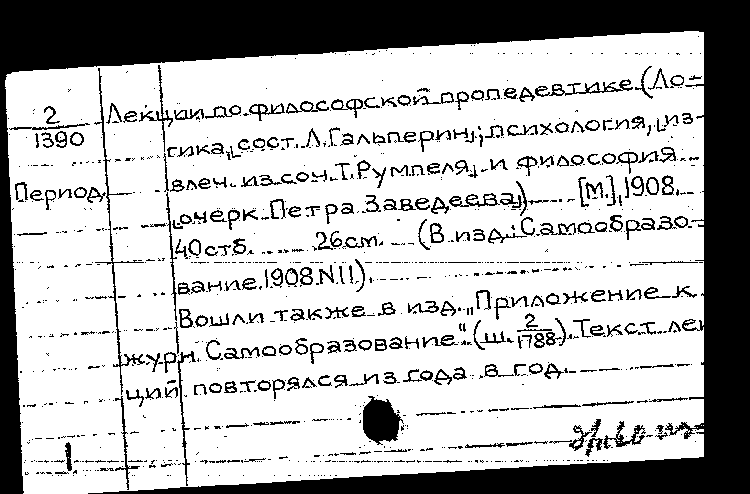 2 Лекции по философской пропедевтике (Ло-
1390 гика, [сост. Л. Гальперин]; психология, [из-
Период. влеч. из соч. Т. Румпеля] и философия
[очерк Петра Заведеева]) [М.], 1908.
40 стб. 26 см. (В изд.: Самообразо-
вание. 1908. N 11).
Вошли также в изд. „Приложение к
журн. Самообразование" (ш. 2/1788). Текст лек
ций повторялся из года в год.
1